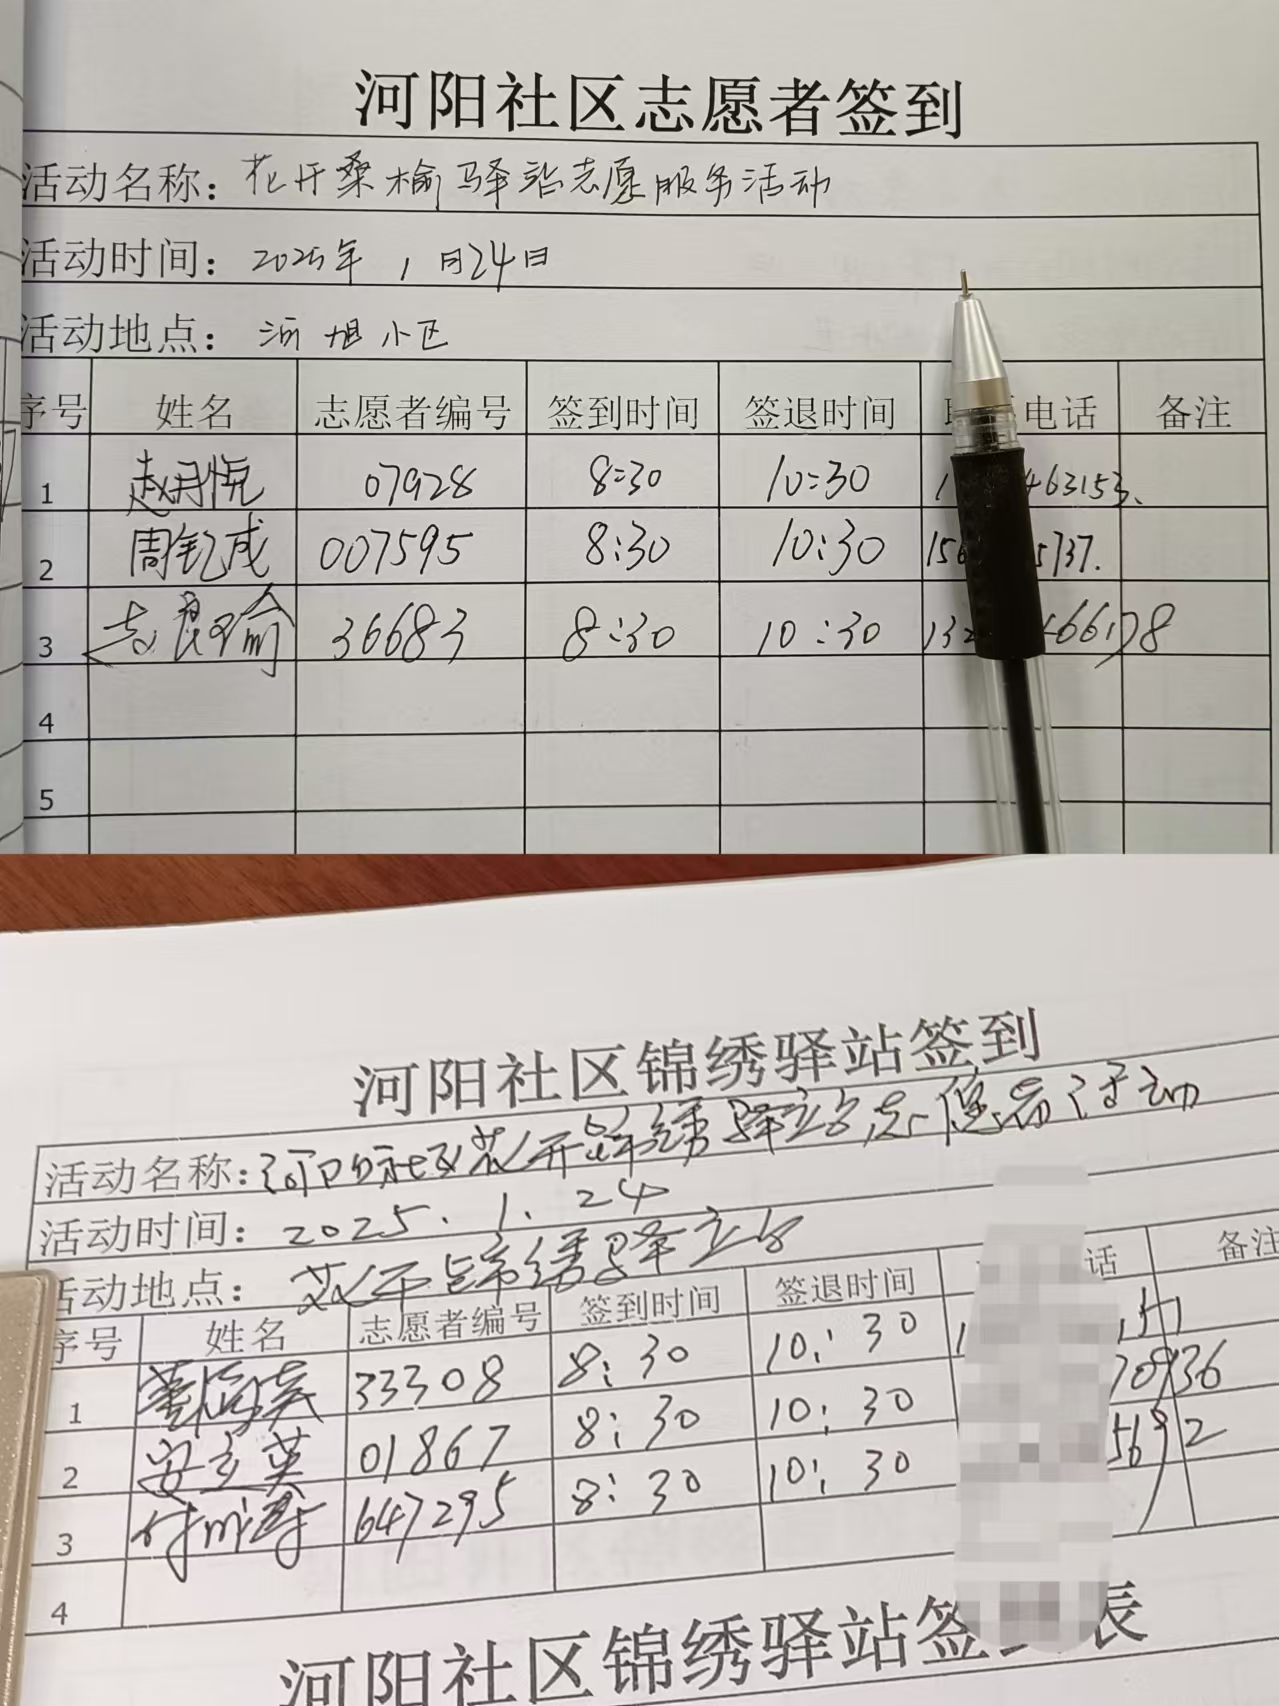 河阳社区志愿者签到
活动名称：花开桑榆驿站志愿服务活动
活动时间：2025年 1月24日
活动地点：河旭小区
序号 姓名 志愿者编号 签到时间 签退时间 电话 备注
1 赵丹悦 07928 8:30 10:30 1 463153.
2 周钇成 007595 8:30 10:30 156 5737.
3 36683 8:30 10:30 132 66178
4
5
河阳社区锦绣驿站签到
活动名称：河阳社区花开锦绣驿站志愿者活动
活动时间：2025.1.24
活动地点：花开锦绣驿站
序号 姓名 志愿者编号 签到时间 签退时间 话 备注
1 33308 8:30 10:30 1
2 安立英 01867 8:30 10:30 70936
3 647295 8:30 10:30 5692
4
河阳社区锦绣驿站签 表